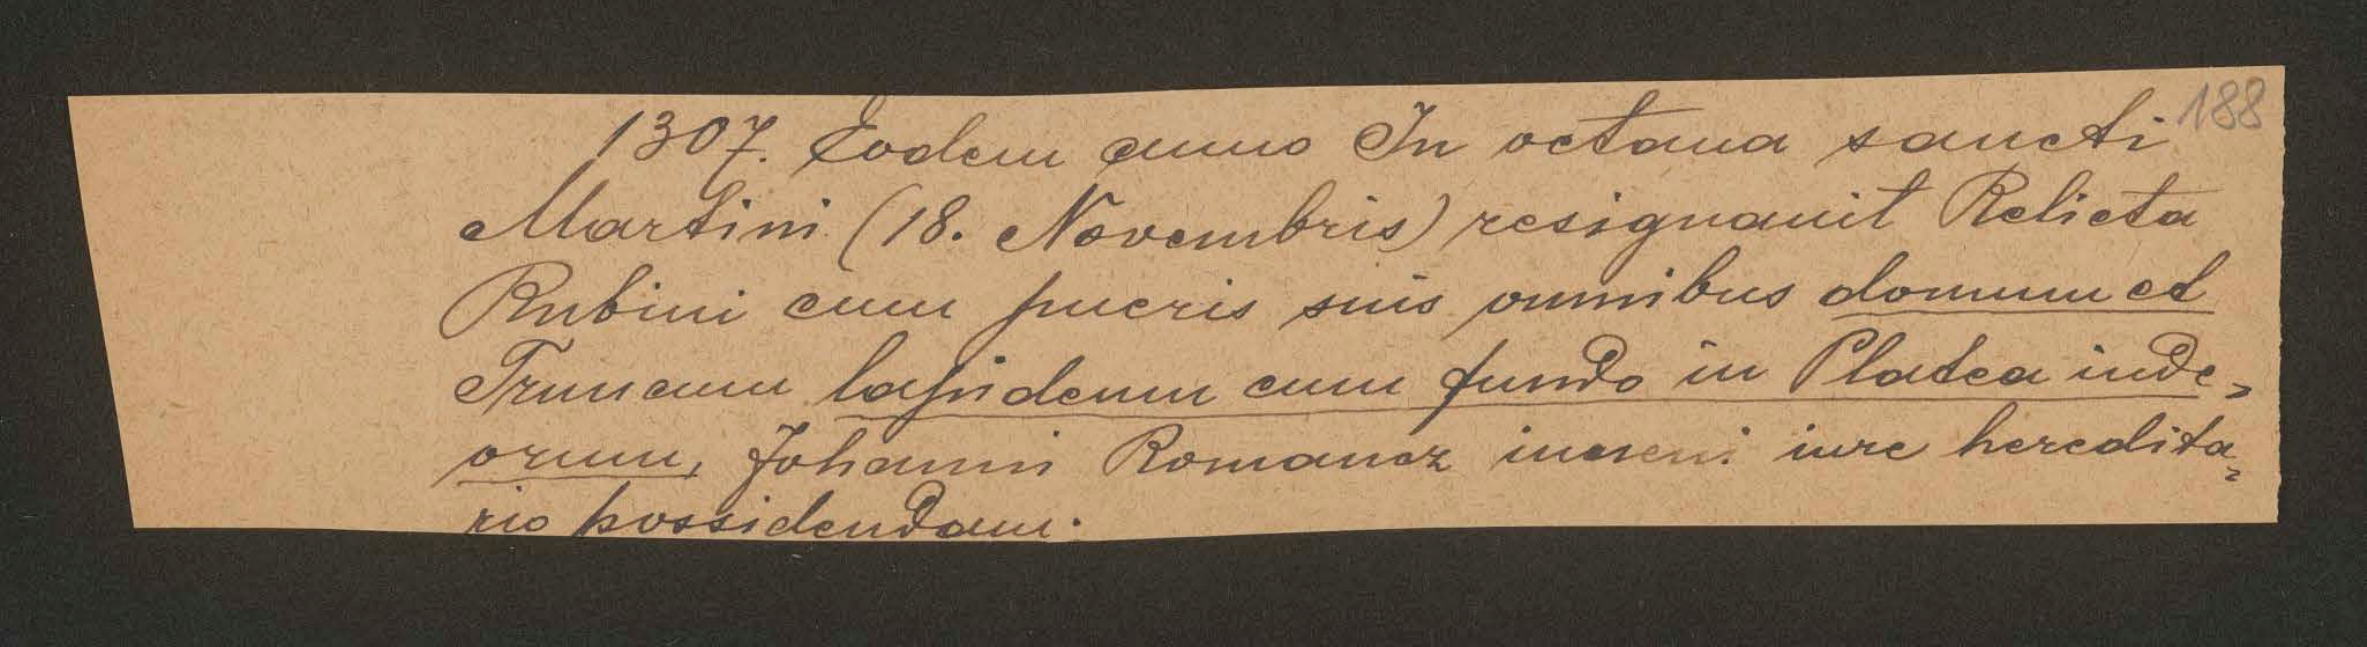 1307. Eodem anno In octaua sancti 188
Martini (18. Novembris) resignauit Relicta
Rubini cum pueris suis omnibus domum et
Truncum lapideum cum fundo in Platea iude-
orum, Johanni Romancz iuueni iure heredita-
rio possidendam.